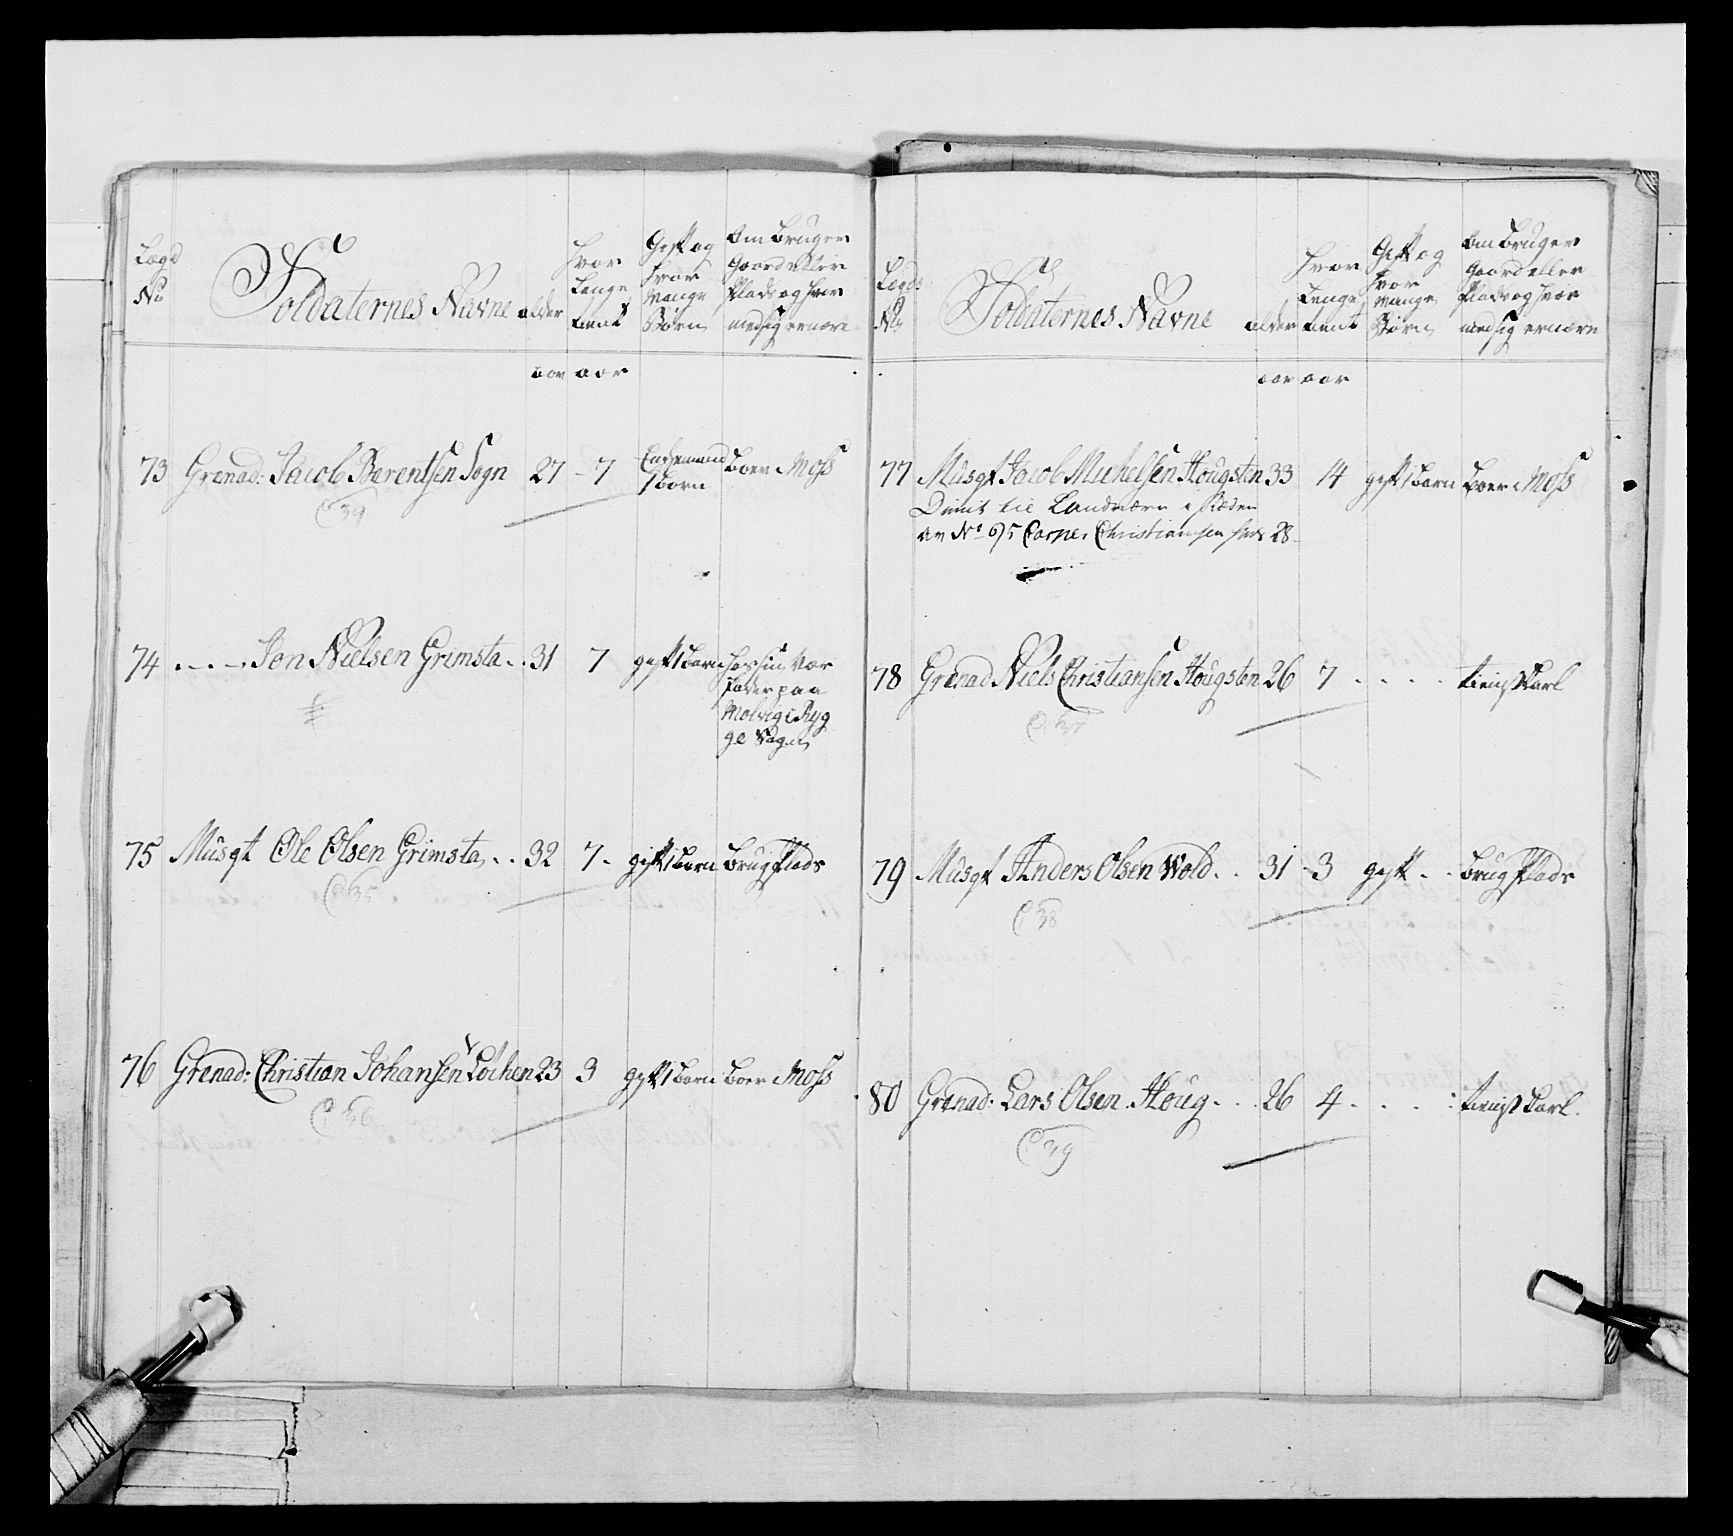 Lægd
No
Soldaternes Navne
alder
hvor
Lenge
tient
Gift og
hvor
mange
Børn
Om bruger
Gaard eller
Plads og hvor
med sig ernære
aar aar
73 Grenad: Jacob Berentsen Sogn 27 - 7 Enkemand boer Moss
1 barn
74 Jon Nielsen Grimsta 31 7 gift 1 barn hos sin Vær
fader paa
Molvig i Ryg
ge Sogn
75 Musqt Ole Olsen Grimsta 32 7 gift 1 barn brug Plads
76 Grenad: Christian Johansen Löchen 23 3 gift 1 barn boer Moss
Lægds
No
Soldaternes Navne
alder
hvor
Lenge
tient
Gift og
hvor
mange
Børn
Om bruger
Gaard eller
Plads og hvor
med sig ernære
aar aar
77 Musqt Jacob Michelsen Hougsten 33 14 gift 1 barn boer Moss
Dimit til Landværn i Stæden
Christiansen 28
78 Grenad Niels Christiansen Hougsten 26 7 tienist Karl
79 Musqt Anders Olsen Wold 31 3 gift brug Plads
80 Grenad: Lars Olsen Houg 26 4 tienist Karl